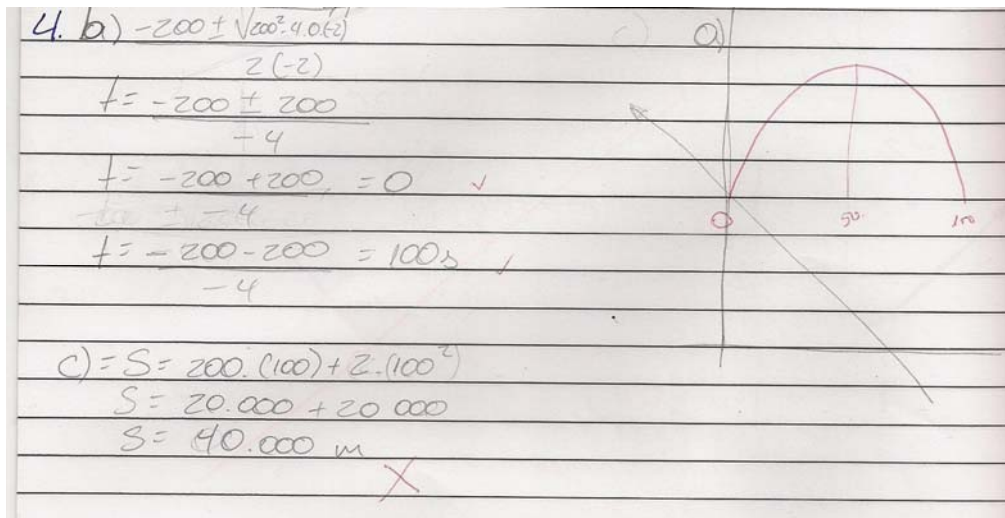 4. b) -200 ± √200²-4.0.(-2)
2(-2)
t = -200 ± 200
-4
t = -200 +200 = 0
-4
t = -200-200 = 100s
-4
c) = S = 200.(100)+2.(100²)
S = 20.000 +20 000
S = 40.000 m
a)
0 50 100